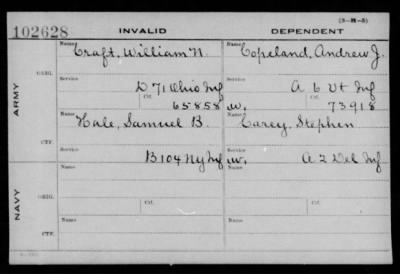 (3-M-5)
102628 INVALID DEPENDENT
ARMY
ORIG.
Name Craft, William N. Name Copeland, Andrew J.
Service D 71 Ohio Inf Service A 6 Vt Inf
Ctf. 65858 w. Ctf. 73918
CTF.
Name Hale, Samuel B. Name Carey, Stephen
Service B 104 Ny Inf w. Service A 2 Del Inf
NAVY
ORIG.
Name Name
Service Ctf. Service Ctf.
CTF.
Name Name